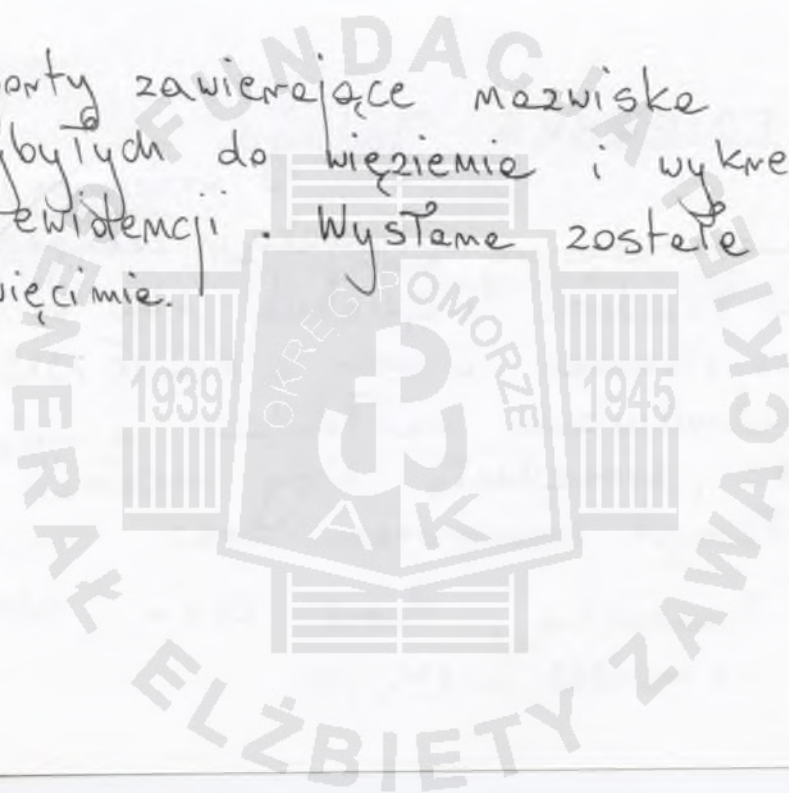 orty zawierające nazwiska
ybyłych do więzienia i wykre
ewidencji. Wysłana została
więcimia.
FUNDACJA
GENERAŁ ELŻBIETY ZAWACKIEJ
OKRĘG POMORZE
1939
1945
AK